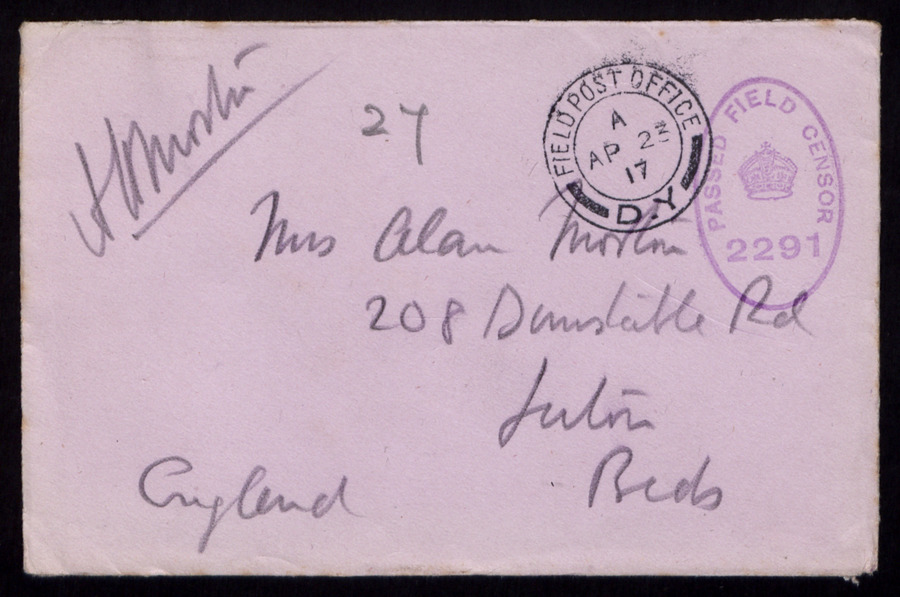 27
FIELD POST OFFICE
A
AP 2
17
D.Y
PASSED FIELD CENSOR
2291
Mrs Alan Morton
208 Dunstable Rd
Luton
Beds
England